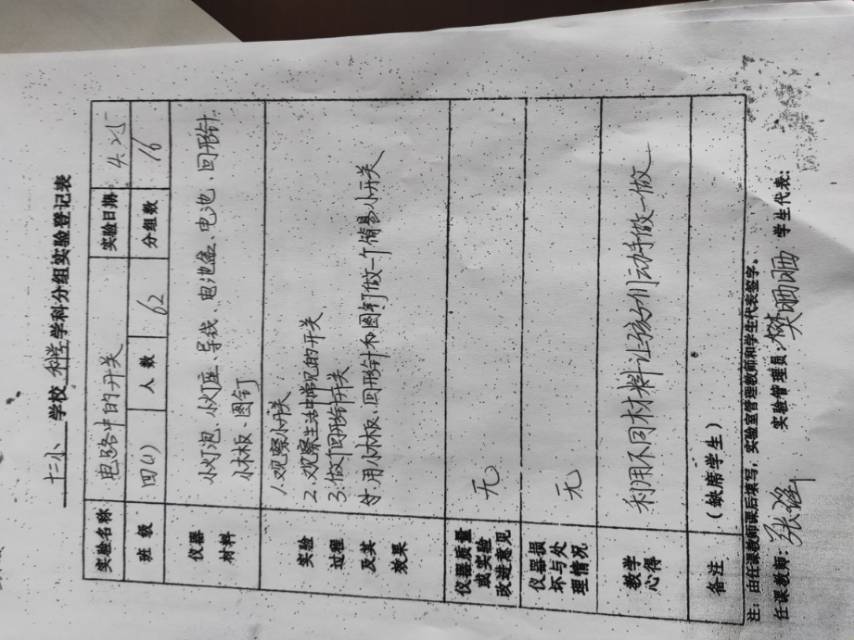 十二小 学校 科学 学科分组实验登记表
实验名称 电路中的开关 实验日期 4.25
班级 四(1) 人数 62 分组数 16
仪器材料 小灯泡、小灯座、导线、电池盒、电池、回形针
小木板、图钉
实验过程及其效果 1.观察小开关
2.观察生活中常见的开关
3.做个回形针开关
用小木板、回形针和图钉做一个简易小开关
仪器质量或实验改进意见 无
仪器损坏与处理情况 无
教学心得 利用不同材料让孩子们动手做一做
备注 (缺席学生)
注:由任课教师课后填写,实验室管理教师和学生代表签字。
任课教师:张瑶 实验管理员: 学生代表: